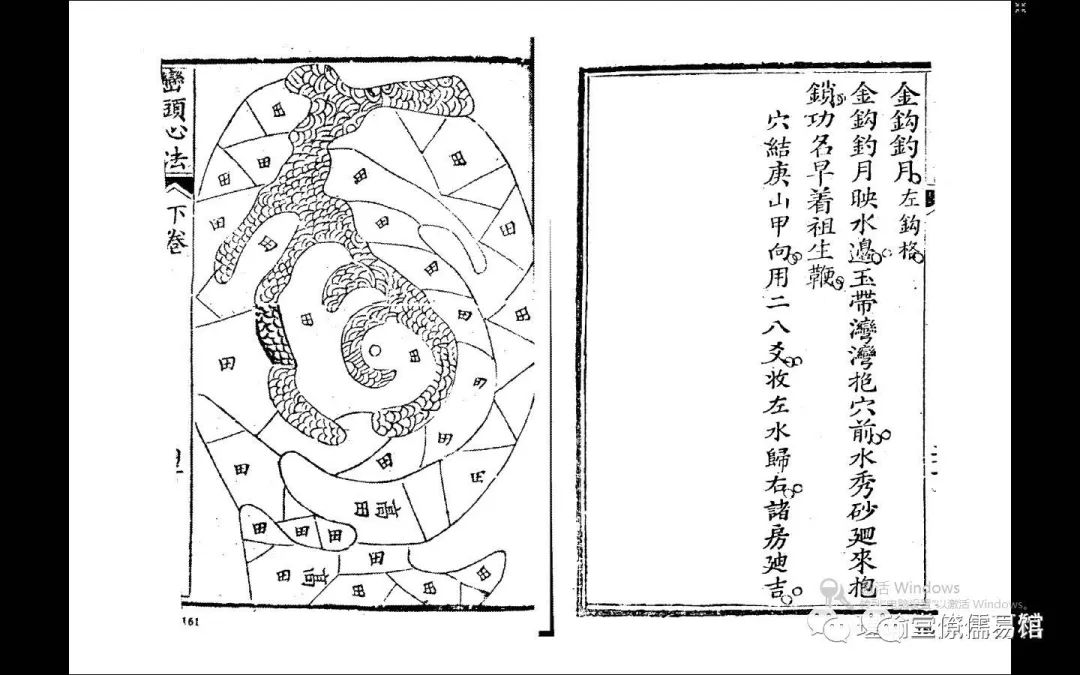 金鈎釣月 左鈎格
金鈎釣月映水邊玉帶灣灣抱穴前水秀砂廻來抱
鎖功名早着祖生鞭
穴結庚山甲向用二八爻收左水歸右諸房迪吉
巒頭心法
下卷
田
田
田
田
田
田
田
田
田
田
田
田
田
田
田
田
田
田
田
田
高
田
田
田
田
田
高
田
田
161
活 Windows
以激活 Windows。
儒易馆